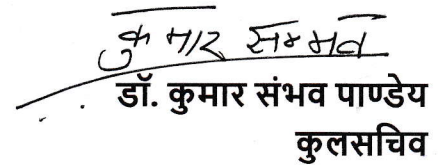 कुमार सम्भव
डॉ. कुमार संभव पाण्डेय
कुलसचिव